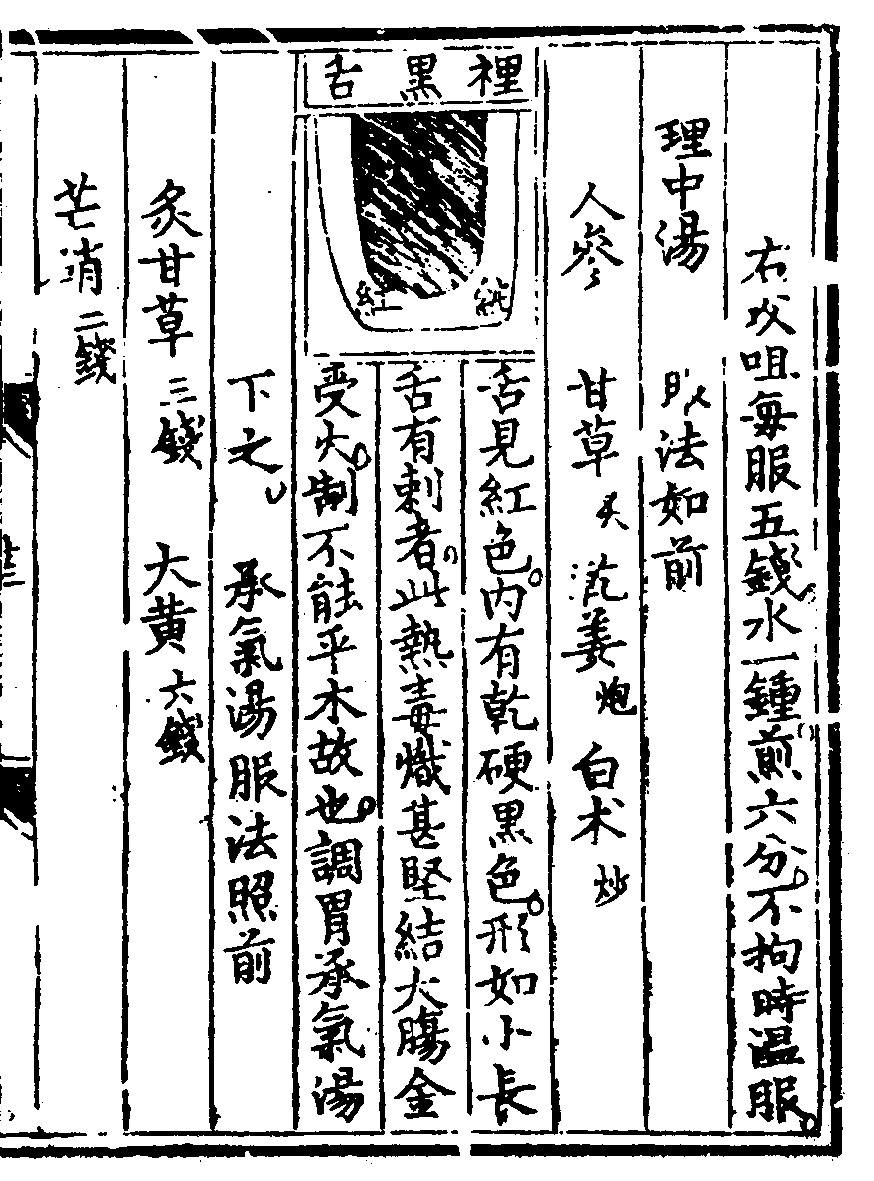 右㕮咀每服五錢水一鍾煎六分不拘時溫服
理中湯　服法如前
人參　甘草炙　乾姜炮　白术炒
裡黑舌
純紅
舌見紅色內有乾硬黑色形如小長
舌有刺者此熱毒熾甚堅結大腸金
受火制不能平木故也調胃承氣湯
下之　承氣湯服法照前
炙甘草三錢　大黃六錢
芒消二錢